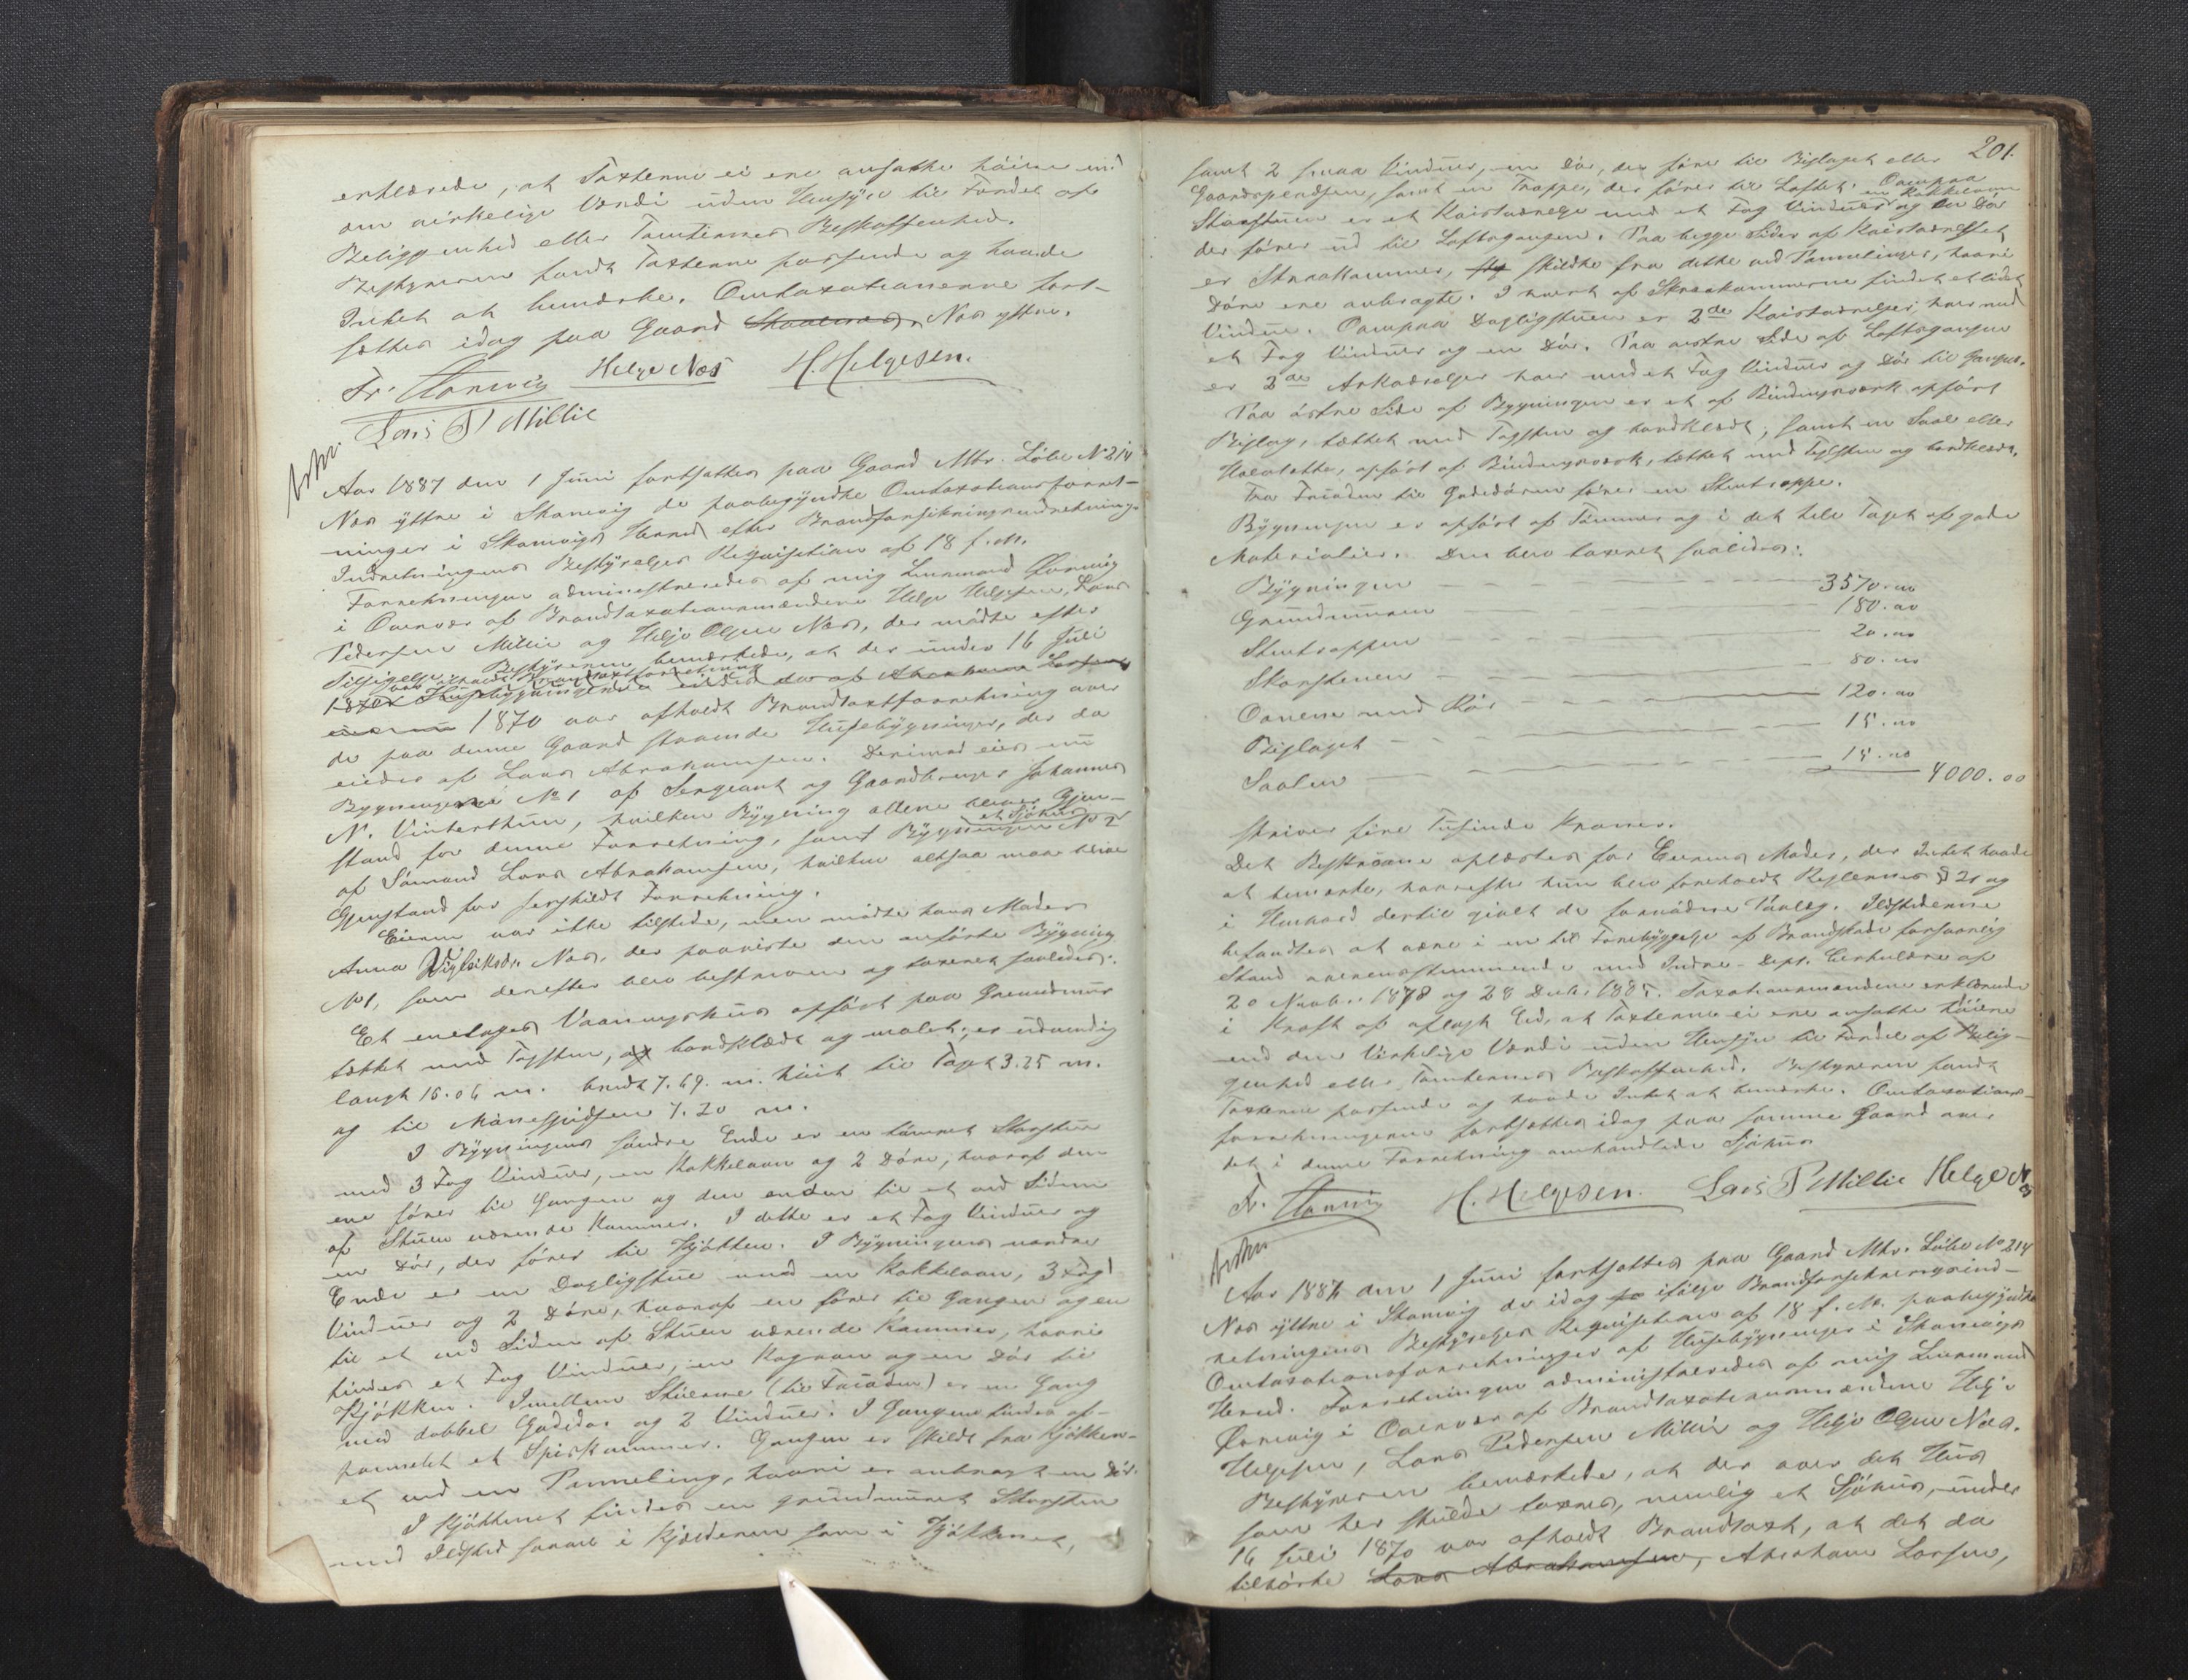 erklærede, at Taxterne ei ere ansatte høiere end
den virkelige Værdi uden Hensyn til Fordel af
Beliggenhed eller Tomternes Beskaffenhed.
Bestyreren fandt Taxterne passende og havde
Intet at bemærke. Omtaxationerne fort-
sættes idag paa Gaard Næs yttre.
Fr. Helge Næs H. Helgesen.
Lars P Millie
Aar 1887 den 1 Juni fortsattes paa Gaard Mtr. Løbe No 214
Næs yttre i Skonevig de paabegyndte Omtaxationsforret-
ninger i Skonevigs Herred efter Brandforsikringsindretnings
Indretningens Bestyrelses Reqvisition af 18 f. M.
Forretningen administreredes af mig Lensmand
i Overvær af Brandtaxationsmændene Helge Helgesen, Lars
Pedersen Millie og Helje Olsen Næs, der mødte efter
Tilsigelse. Bestyreren bemærkede, at der under 16 Juli
1870 var afholdt Brandtaxtforretning over
de paa denne Gaard staaende Husebygninger, der da
eiedes af Lars Abrahamsen. Derimod eies nu
Bygningen No 1 af Sergeant og Gaardbruger Johannes
N. Vinterthun, hvilken Bygning allene bliver Gjen-
stand for denne Forretning, samt Bygningen No 2 et Sjøhus
af Sømand Lars Abrahamsen, hvilken altsaa maa blive
Gjenstand for serskildt Forretning.
Eieren var ikke tilstede, men mødte hans Moder
Anna Næs, der paaviste den anførte Bygning
No 1, som derefter blev beskreven og taxeret saaledes:
Et enetages Vaaningshus opført paa Grundmur
tættet med Tagsten, bordklædt og malet; er udvendig
langt 15.06 m. bredt 7.69. m. høit til Taget 3.25 m.
og til Mønespidsen 7.20 m.
I Bygningens søndre Ende er en tømret Storstue
med 3 Fag Vinduer, en Kakkelovn og 2 Døre, hvoraf den
ene fører til Gangen og den anden til et ved Siden
af Stuen værende Kammer. I dette er et Fag Vinduer og
en Dør, der fører til Kjøkken. I Bygningens nordre
Ende er en Dagligstue med en Kakkelovn, 3 Fag
Vinduer og 2 Døre, hvoraf en fører til Gangen og en
til et ved Siden af Stuen værende Kammer, hvori
findes et Fag Vinduer, en Kogeovn og en Dør til
Kjøkken. Imellem Stuerne (til Facaden) er en Gang
med dobbel Gadedør og 2 Vinduer. I Gangen findes af-
pannelet et Spiskammer. Gangen er skildt fra Kjøkken-
et ved en Panneling, hvori er anbragt en Dør.
I Kjøkkenet findes en grundmuret Skorsten
med Ildsted saavel i Kjælderen som i Kjøkkenet,
201.
samt 2 smaa Vinduer, en Dør, der fører til Bislaget eller
Gaardspladsen, samt en Trappe, der fører til Loftet. Ovenpaa
Storstuen er et Kvistværelse med et Fag Vinduer, en Kakkelovn og en Dør
der fører ud til Loftsgangen. Paa begge Sider af Kvistværelset
er Skraakammer, skildte fra dette ved Pannelinger, hvori
Døre ere anbragte. I hvert af Skraakammerne findes et lidet
Vindue. Ovenpaa Dagligstuen er 2de Kvistværelser, hver med
et Fag Vinduer og en Dør. Paa østre Side af Loftsgangen
er 2de Arkværelser hver med et Fag Vinduer og Dør til Gangen.
Paa østre Side af Bygningen er et af Bindingsværk opført
Bislag, tættet med Tagsten og bordklædt, samt en Sval eller
opført af Bindingsværk, tættet med Tagsten og bordklædt.
Fra Facaden til Gadedøren fører en Stentrappe.
Bygningen er opført af Tømmer og i det hele Taget af gode
Materialier. Den blev taxeret saaledes:
Bygningen 3570.00
Grundmuren 180.00
Stentrappen 20.00
Skorstenen 80.00
Ovnene med Rør 120.00
Bislaget 15.00
Svalen 15.00
4000.00
skriver fire Tusinde Kroner.
Det Beskrevne oplæstes for Eierens Moder, der Intet havde
at bemærke, hvorefter hun blev foreholdt Reglernes § 21 og
i Henhold dertil givet de fornødne Paalæg. Ildstederne
befandtes at være i en til Forebyggelse af Brandskade forsvarlig
Stand overensstemmende med Indre-Dept. Cirkulære af
20 Novbr. 1878 og 28 Decbr. 1885. Taxationsmændene erklærede
i Kraft af aflagt Eed, at Taxterne ei ere ansatte høiere
end den virkelige Værdi uden Hensyn til Fordel af Belig-
genhed eller Tomternes Beskaffenhed. Bestyreren fandt
Taxterne passende og havde Intet at bemærke. Omtaxations-
forretningerne fortsættes idag paa samme Gaard over
det i denne Forretning omhandlede Sjøhus
Fr. H. Helgesen. Lars P Millie Helge Næs
Aar 1887 den 1 Juni fortsattes paa Gaard Mtr. Løbe No 214
Næs yttre i Skonevig de idag ifølge Brandforsikringsind-
retningens Bestyrelses Reqvisition af 18 f. M. paabegyndte
Omtaxationsforretninger af Husebygninger i Skonevigs
Herred. Forretningen administreredes af mig Lensmand
i Overvær af Brandtaxationsmændene Helje
Helgesen, Lars Pedersen Millie og Helje Olsen Næs.
Bestyreren bemærkede, at der over det Hus
som her skulde taxeres, nemlig et Sjøhus, under
16 Juli 1870 var afholdt Brandtaxt, at det da
tilhørte Lars Abrahamsen, Abraham Larsen,